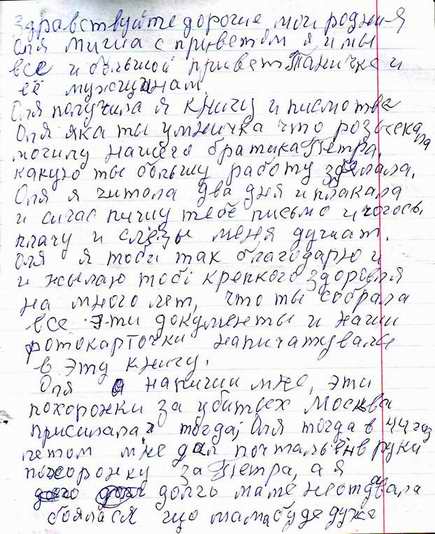 здравствуйте дорогие мои родния
Оля Миша с приветом я и мы
все и большой привет Паничке и
её мужчинам.
Оля получила я книгу и писмо твое
Оля яка ты умничка что розыскала
могилу нашего братика Петра,
какую ты большу работу зделала,
Оля я читола два дня и плакала
и сичас пишу тебе письмо и чогось
плачу и слёзы меня душат.
Оля я тобi так благодарю и
и жылаю тобi крепкого здоровля
на много лет, что ты собрала
все эти документы и наши
фотокарточки напичатувалы
в эту книгу.
Оля напиши мне, эти
похоронки за убитых Москва
присилала тогда, Оля тогда в 44 год
летом мне дал почтальëн в руки
похоронку за Петра, а я
долго маме не отдавала
боялася що мама буде дуже